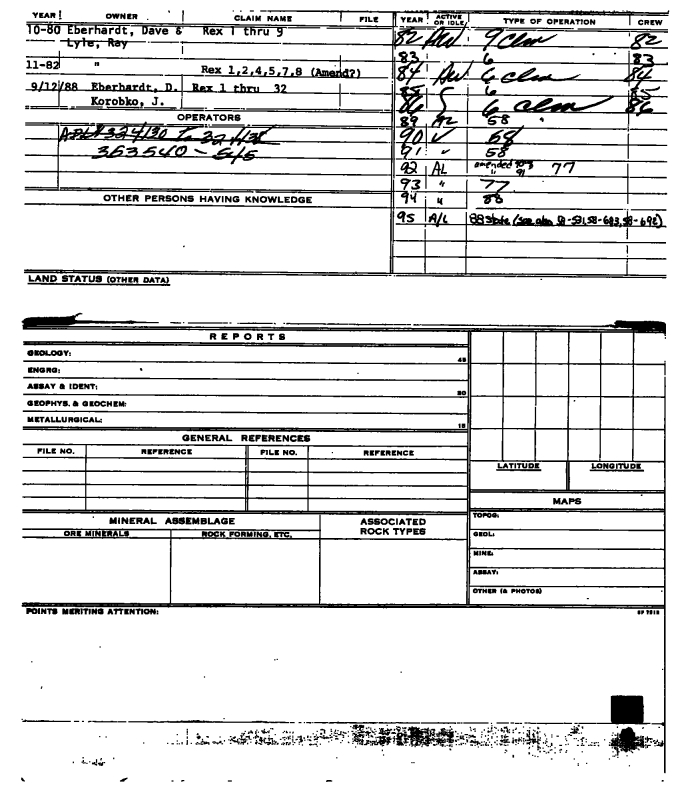 YEAR OWNER CLAIM NAME FILE YEAR ACTIVE OR IDLE TYPE OF OPERATION CREW
10-80 Eberhardt, Dave & Rex 1 thru 9
Lyle, Ray
11-82 " Rex 1,2,4,5,7,8 (Amend?)
9/12/88 Eberhardt, D. Rex 1 thru 32
Korobko, J.
82 AW 9 Clm 82
83 6 83
84 AW 6 Clm 84
85 6 85
86 6 clm 86
89 AL 58
90 ✓ 58
91 " 58
92 AL amended 77
93 " 77
94 " 88
95 A/L 88 state (see also 58-531, 58-683, 58-698)
OPERATORS
ADL# 324130 To 324138
353540 - 545
OTHER PERSONS HAVING KNOWLEDGE
LAND STATUS (OTHER DATA)
REPORTS
GEOLOGY:
45
ENGRG:
ASSAY & IDENT:
30
GEOPHYS. & GEOCHEM:
METALLURGICAL:
15
GENERAL REFERENCES
FILE NO. REFERENCE FILE NO. REFERENCE
LATITUDE LONGITUDE
MAPS
TOPOG:
GEOL:
MINE:
ASSAY:
OTHER (& PHOTOS)
MINERAL ASSEMBLAGE ASSOCIATED ROCK TYPES
ORE MINERALS ROCK FORMING, ETC.
POINTS MERITING ATTENTION: